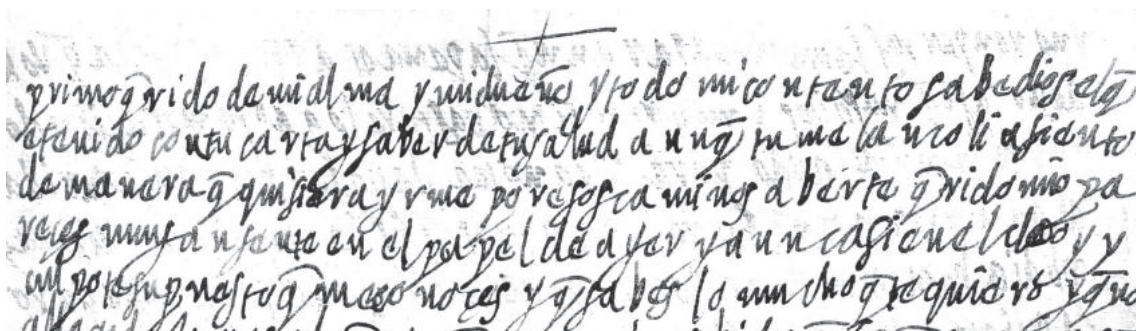 primo q̄rido de mi alma y mi dueño y todo mi contento sabe dios el q̄
e tenido con tu carta y saber de tu salud a unq̄ tu melancolia siento
de manera q̄ quisiera yrme por esos caminos a berte q̄rido mio pa
reces muy ausente en el papel de ayer y aun casi en el de oy y
supuesto q̄ me conoces y q̄ sabes lo mucho q̄ te quiero y q̄ no